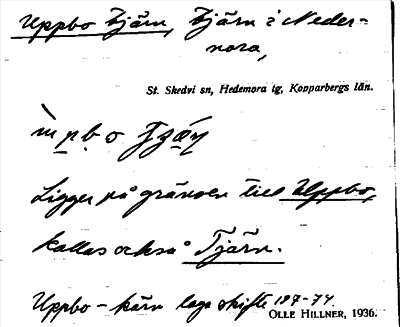 Uppbo tjärn, tjärn i Neder-
nora,
St. Skedvi sn, Hedemora tg, Kopparbergs län.
Ligger på gränsen till Uppbo,
kallas också Tjärn.
Uppbo - kärn laga skifte
OLLE HILLNER, 1936.